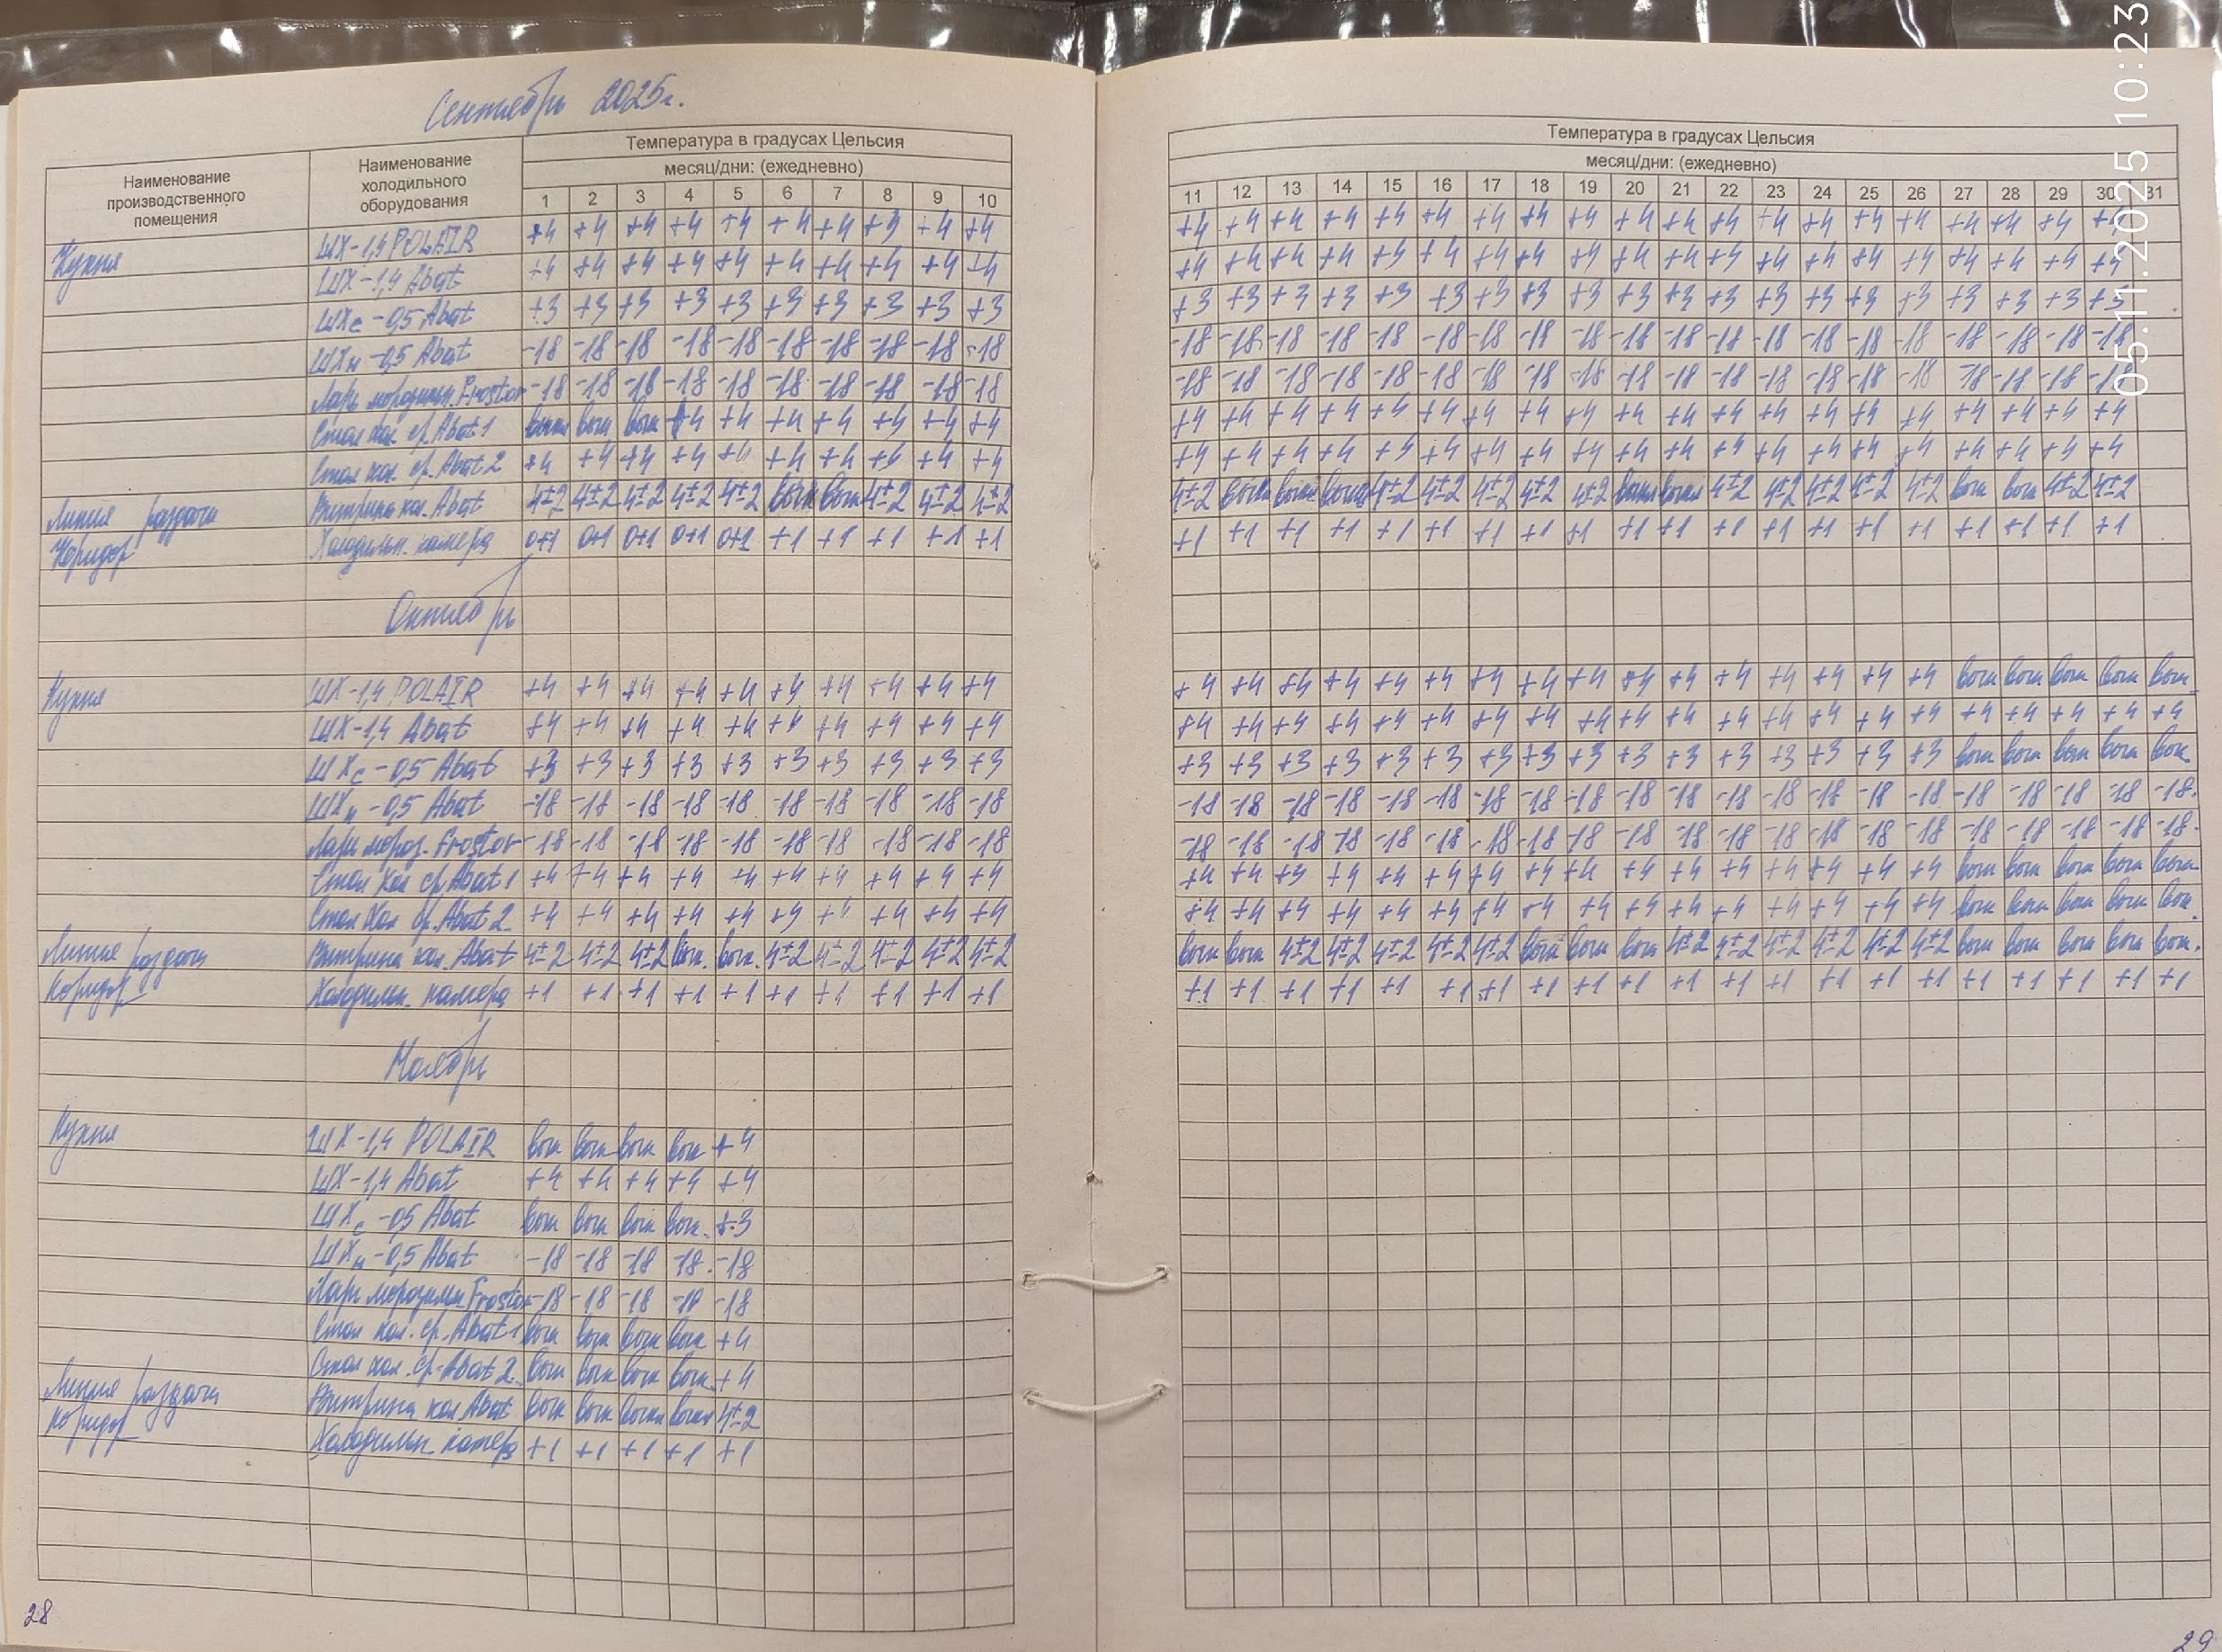 Сентябрь 2025г.
Наименование производственного помещения | Наименование холодильного оборудования | Температура в градусах Цельсия | Температура в градусах Цельсия
месяц/дни: (ежедневно) | месяц/дни: (ежедневно)
1 2 3 4 5 6 7 8 9 10 11 12 13 14 15 16 17 18 19 20 21 22 23 24 25 26 27 28 29 30 31
Кухня ШХ-1,4 POLAIR +4 +4 +4 +4 +4 +4 +4 +4 +4 +4 +4 +4 +4 +4 +4 +4 +4 +4 +4 +4 +4 +4 +4 +4 +4 +4 +4 +4 +4 +4
ШХ-1,4 Abat +4 +4 +4 +4 +4 +4 +4 +4 +4 +4 +4 +4 +4 +4 +4 +4 +4 +4 +4 +4 +4 +4 +4 +4 +4 +4 +4 +4 +4 +4
ШХс-0,5 Abat +3 +3 +3 +3 +3 +3 +3 +3 +3 +3 +3 +3 +3 +3 +3 +3 +3 +3 +3 +3 +3 +3 +3 +3 +3 +3 +3 +3 +3 +3
ШХн-0,5 Abat -18 -18 -18 -18 -18 -18 -18 -18 -18 -18 -18 -18 -18 -18 -18 -18 -18 -18 -18 -18 -18 -18 -18 -18 -18 -18 -18 -18 -18 -18
Ларь морозильн. Frostor -18 -18 -18 -18 -18 -18 -18 -18 -18 -18 -18 -18 -18 -18 -18 -18 -18 -18 -18 -18 -18 -18 -18 -18 -18 -18 -18 -18 -18 -18
Стол хол. ср. Abat 1 выкл выкл выкл +4 +4 +4 +4 +4 +4 +4 +4 +4 +4 +4 +4 +4 +4 +4 +4 +4 +4 +4 +4 +4 +4 +4 +4 +4 +4 +4
Стол хол. ср. Abat 2 +4 +4 +4 +4 +4 +4 +4 +4 +4 +4 +4 +4 +4 +4 +4 +4 +4 +4 +4 +4 +4 +4 +4 +4 +4 +4 +4 +4 +4 +4
Линия раздачи Витрина хол. Abat 4±2 4±2 4±2 4±2 4±2 выкл выкл 4±2 4±2 4±2 4±2 выкл выкл выкл 4±2 4±2 4±2 4±2 4±2 выкл выкл 4±2 4±2 4±2 4±2 4±2 выкл выкл 4±2 4±2
Коридор Холодильн. камера 0+1 0+1 0+1 0+1 0+1 +1 +1 +1 +1 +1 +1 +1 +1 +1 +1 +1 +1 +1 +1 +1 +1 +1 +1 +1 +1 +1 +1 +1 +1 +1
Октябрь
Кухня ШХ-1,4 POLAIR +4 +4 +4 +4 +4 +4 +4 +4 +4 +4 +4 +4 +4 +4 +4 +4 +4 +4 +4 +4 +4 +4 +4 +4 +4 +4 выкл выкл выкл выкл выкл
ШХ-1,4 Abat +4 +4 +4 +4 +4 +4 +4 +4 +4 +4 +4 +4 +4 +4 +4 +4 +4 +4 +4 +4 +4 +4 +4 +4 +4 +4 +4 +4 +4 +4 +4
ШХс-0,5 Abat +3 +3 +3 +3 +3 +3 +3 +3 +3 +3 +3 +3 +3 +3 +3 +3 +3 +3 +3 +3 +3 +3 +3 +3 +3 +3 выкл выкл выкл выкл выкл
ШХн-0,5 Abat -18 -18 -18 -18 -18 -18 -18 -18 -18 -18 -18 -18 -18 -18 -18 -18 -18 -18 -18 -18 -18 -18 -18 -18 -18 -18 -18 -18 -18 -18 -18
Ларь мороз. Frostor -18 -18 -18 -18 -18 -18 -18 -18 -18 -18 -18 -18 -18 -18 -18 -18 -18 -18 -18 -18 -18 -18 -18 -18 -18 -18 -18 -18 -18 -18 -18
Стол хол ср. Abat 1 +4 +4 +4 +4 +4 +4 +4 +4 +4 +4 +4 +4 +4 +4 +4 +4 +4 +4 +4 +4 +4 +4 +4 +4 +4 +4 выкл выкл выкл выкл выкл
Стол хол ср. Abat 2 +4 +4 +4 +4 +4 +4 +4 +4 +4 +4 +4 +4 +4 +4 +4 +4 +4 +4 +4 +4 +4 +4 +4 +4 +4 +4 выкл выкл выкл выкл выкл
Линия раздачи Витрина хол. Abat 4±2 4±2 4±2 выкл. выкл. 4±2 4±2 4±2 4±2 4±2 выкл выкл 4±2 4±2 4±2 4±2 4±2 выкл выкл выкл 4±2 4±2 4±2 4±2 4±2 4±2 выкл выкл выкл выкл выкл.
Коридор Холодильн. камера +1 +1 +1 +1 +1 +1 +1 +1 +1 +1 +1 +1 +1 +1 +1 +1 +1 +1 +1 +1 +1 +1 +1 +1 +1 +1 +1 +1 +1 +1 +1
Ноябрь
Кухня ШХ-1,4 POLAIR выкл выкл выкл выкл +4
ШХ-1,4 Abat +4 +4 +4 +4 +4
ШХс-0,5 Abat выкл выкл выкл выкл. +3
ШХн-0,5 Abat -18 -18 -18 -18 -18
Ларь морозильн. Frostor -18 -18 -18 -18 -18
Стол хол. ср. Abat 1 выкл выкл выкл выкл +4
Стол хол. ср. Abat 2 выкл выкл выкл выкл +4
Линия раздачи Витрина хол Abat выкл выкл выкл выкл 4±2
Коридор Холодильн. камера +1 +1 +1 +1 +1
28
29
05.11.2025 10:23